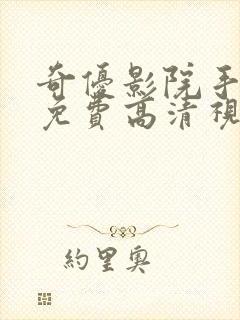 奇優影院手
免費高清視
約里奧